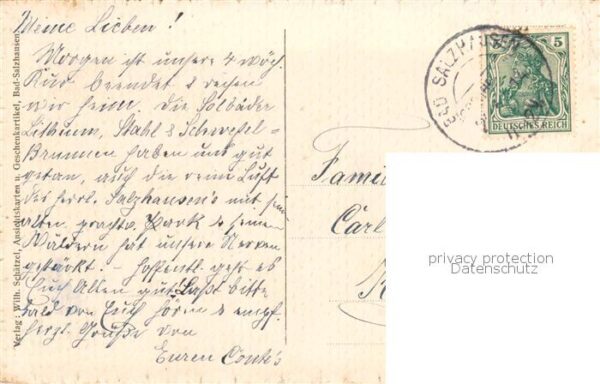 Meine Lieben!
Morgen ist unsere 4 wöch.
Kur beendet & reisen
wir heim. Die Solbäder
Lithium, Stahl & Schwefel=
Brunnen haben uns gut
getan, auch die reine Luft
des herrl. Salzhausen's mit sein
alten, prachtv. Park & seinen
Wäldern hat unsere Nerven
gestärkt! – Hoffentl. geht es
Euch Allen gut. Laßt bitte
bald von Euch hören & empf.
herzl. Grüße von
Euren Conté's
Verlag: Wilh. Schätzel, Ansichtskarten u. Geschenkartikel, Bad-Salzhausen
BAD SALZHAUSEN
5
DEUTSCHES REICH
Famil
Carl
privacy protection
Datenschutz